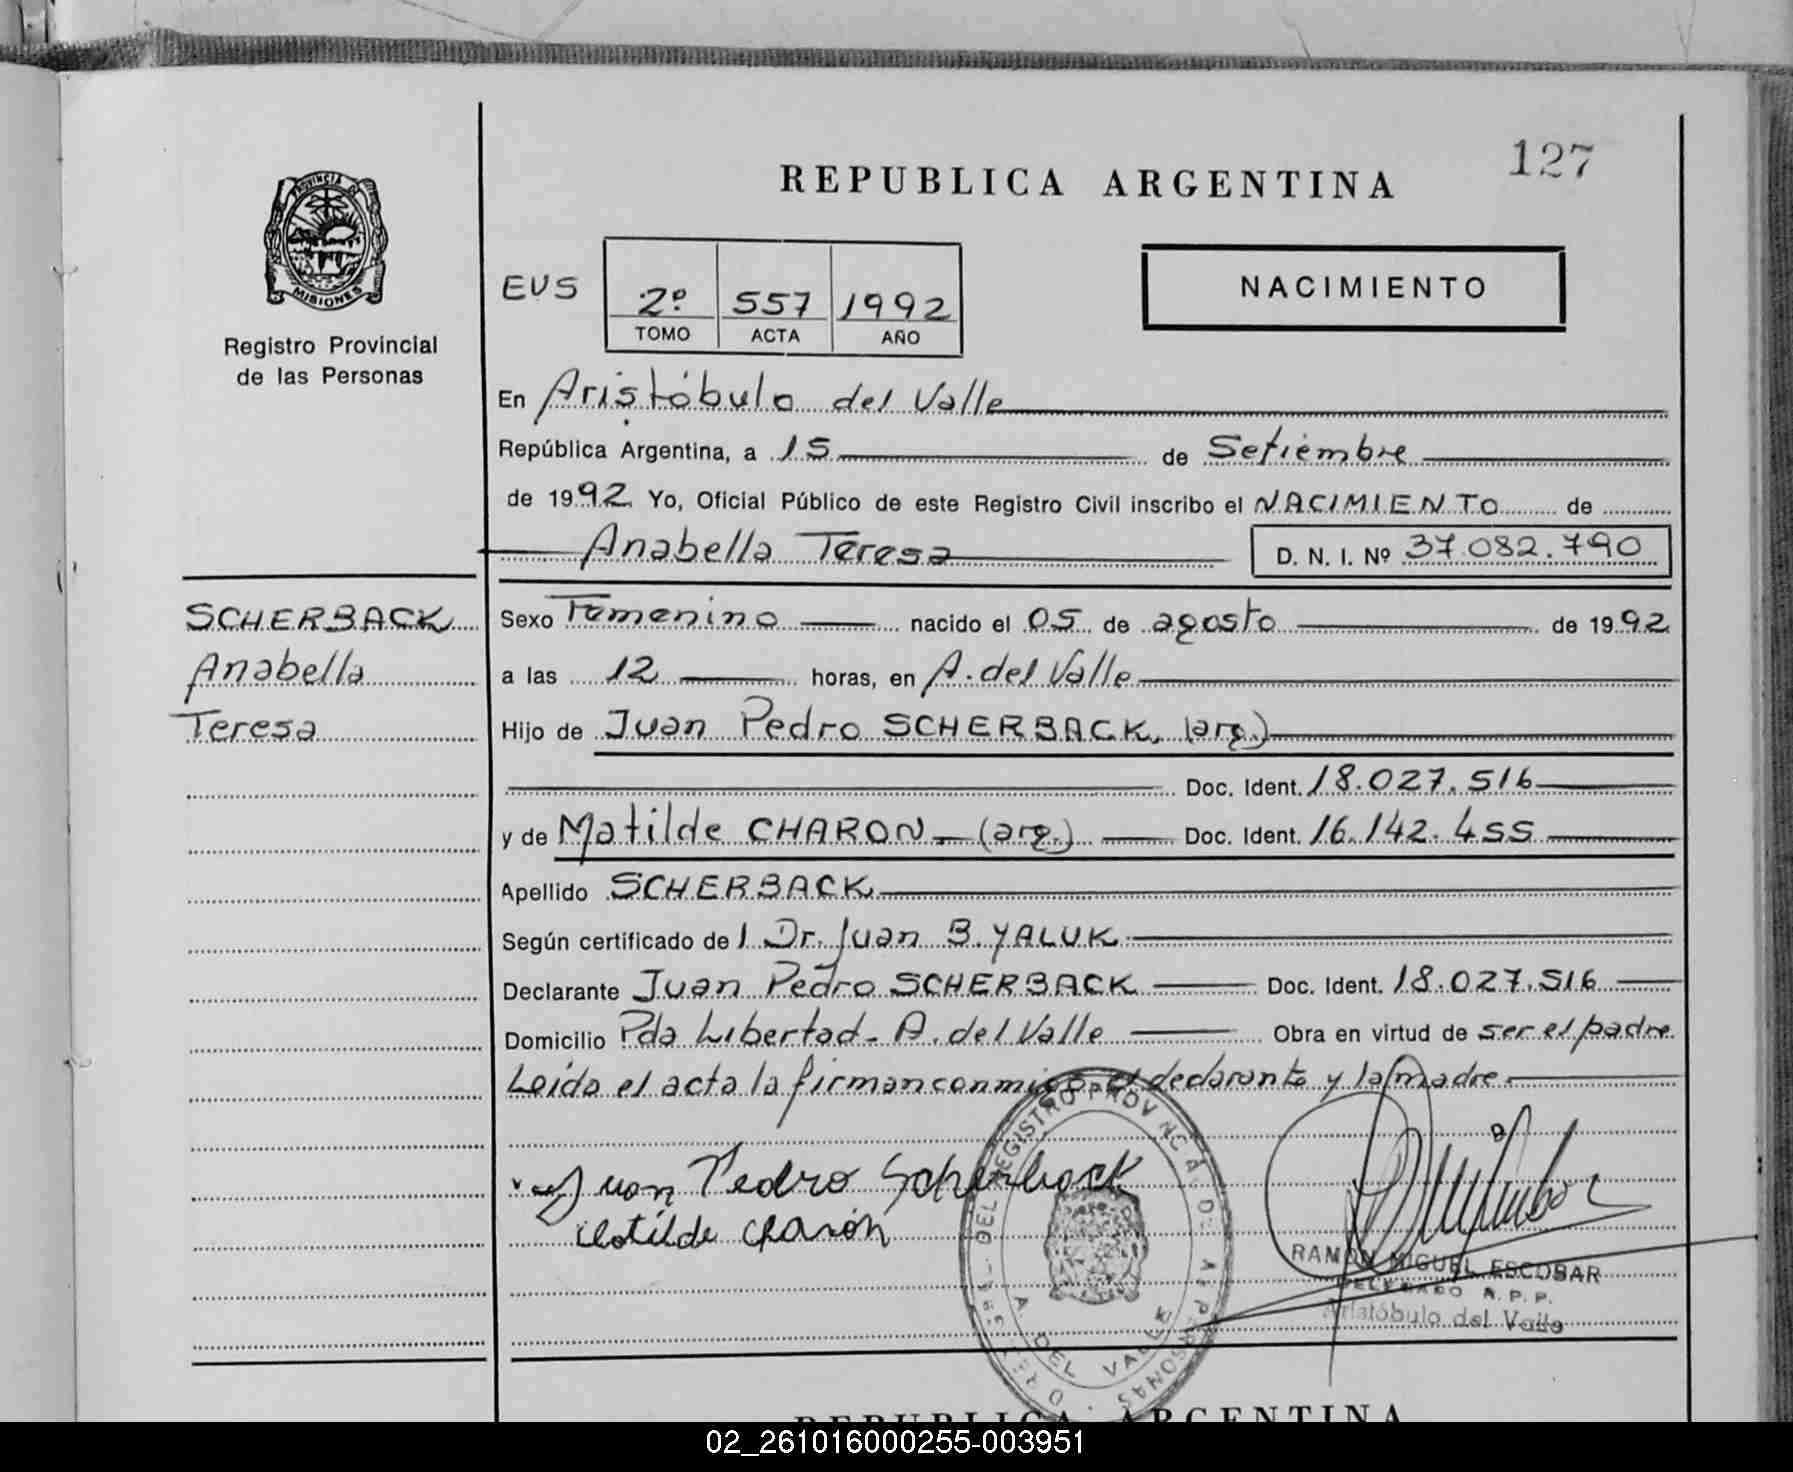 127
REPUBLICA ARGENTINA
PROVINCIA DE
MISIONES
Registro Provincial
de las Personas
EVS
2º 557 1992
TOMO ACTA AÑO
NACIMIENTO
En Aristóbulo del Valle
República Argentina, a 15 de Setiembre
de 1992 Yo, Oficial Público de este Registro Civil inscribo el NACIMIENTO de
Anabella Teresa D. N. I. Nº 37.082.790
SCHERBACK
Anabella
Teresa
Sexo Femenino nacido el 05 de agosto de 1992
a las 12 horas, en A. del Valle
Hijo de Juan Pedro SCHERBACK, (arg.)
Doc. Ident. 18.027.516
y de Matilde CHARON (arg.) Doc. Ident. 16.142.455
Apellido SCHERBACK
Según certificado de l Dr. Juan B. YALUK
Declarante Juan Pedro SCHERBACK Doc. Ident. 18.027.516
Domicilio Pda Libertad - A. del Valle Obra en virtud de ser el padre
Leída el acta la firman conmigo el declarante y la madre
Juan Pedro Scherback
Clotilde Charón
REGISTRO PROVINCIAL DE
A. DEL VALLE
RAMON MIGUEL ESCOBAR
DELEGADO R. P. P.
Aristóbulo del Valle
REPUBLICA ARGENTINA
02_261016000255-003951